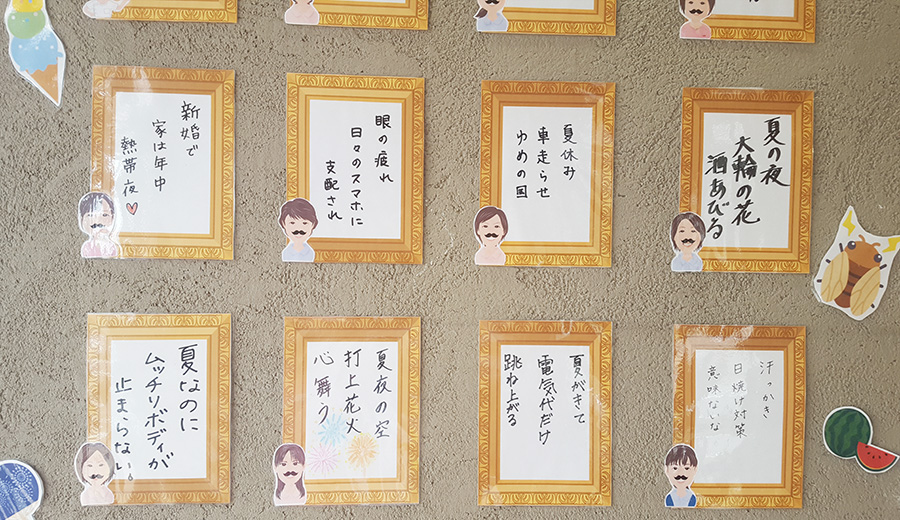 新婚で
家は年中
熱帯夜♡
眼の疲れ
日々のスマホに
支配され
夏休み
車走らせ
ゆめの国
夏の夜
大輪の花
酒あびる
夏なのに
ムッチリボディが
止まらない。
夏夜の空
打上花火
心舞う
夏がきて
電気代だけ
跳ね上がる
汗っかき
日焼け対策